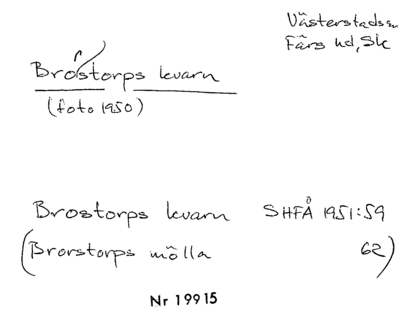 Västerstads sn
Färs hd, Sk
Brorstorps kvarn
(foto 1950)
Brostorps kvarn SHFÅ 1951:59
(Brorstorps mölla 62)
Nr 19915